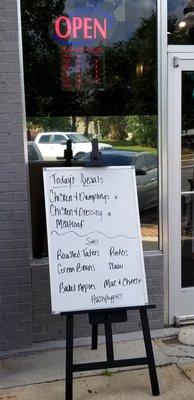 OPEN
Today's Specials
Chicken & Dumplings
Chicken & Dressing
Meatloaf
Sides
Roasted Taters Pintos
Green Beans Slaw
Baked Apples Mac & Cheese
Hushpuppies